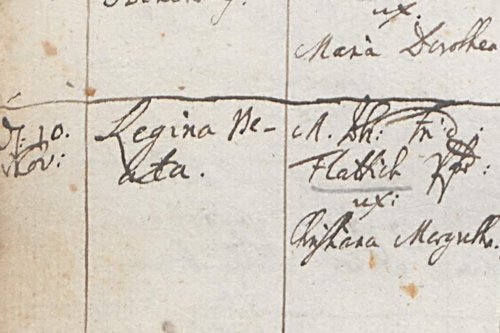 ux.
Maria Dorothea
D. 10.
Nov:
Regina Be-
ata.
M. Joh: Frid:
Flattich Pfr:
ux:
Christiana Margretha.